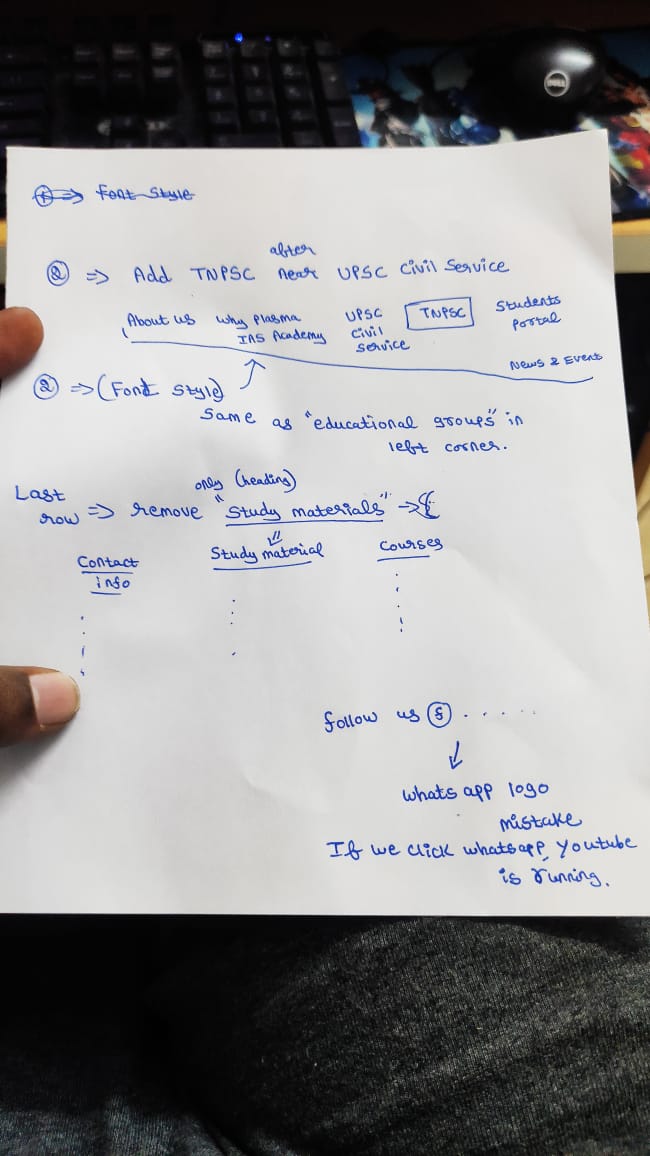 ① ⇒ Font Style
② ⇒ Add TNPSC after near UPSC Civil Service
About us Why Plasma IAS Academy UPSC Civil Service TNPSC Students Portal
News & Event
② ⇒ (Font Style)
Same as "educational groups" in
left corner.
Last row ⇒ remove only (heading) "Study materials" →
Contact info Study material Courses
follow us
whats app logo
mistake
If we click whatsapp, youtube
is running.
DELL